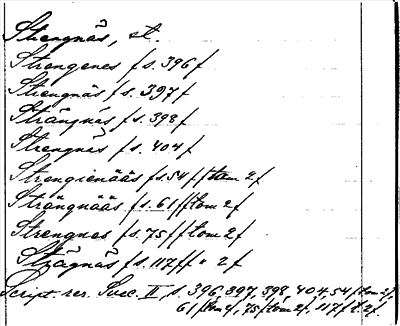 Strengnäs, st.
Strongenes / s. 396 /
Strengnäs / s. 397 /
Strängnäs / s. 398 /
Strengnes / s. 404 /
Strengienääs / s. 54 / / tom 2 /
Strängnääs / s. 61 / / tom 2 /
Strengnes / s. 75 / / tom 2 /
Strägnäs / s. 117 / / " 2 /
Script. rer. Suec. II, s. 396, 397, 398, 404, 54 / tom 2 /,
61 / tom 2 /, 75 / tom 2 /, 117 / t. 2 /.